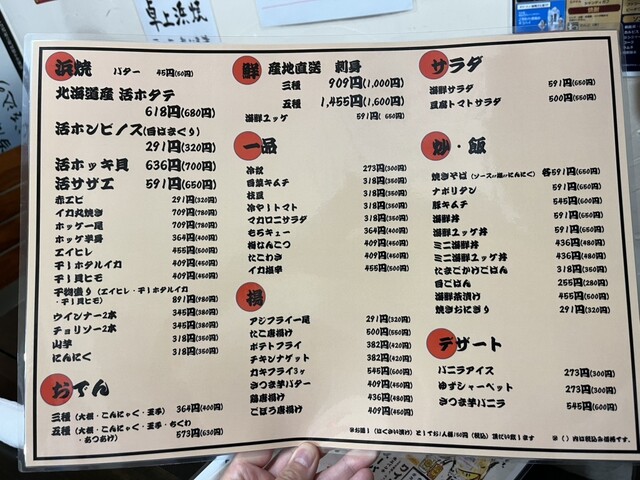 卓上浜焼
浜焼
バター 45円(50円)
北海道産 活ホタテ
618円(680円)
活ホンビノス(白はまぐり)
291円(320円)
活ホッキ貝 636円(700円)
活サザエ 591円(650円)
赤エビ 291円(320円)
イカ丸焼き 709円(780円)
ホッケ一尾 709円(780円)
ホッケ半身 364円(400円)
エイヒレ 455円(500円)
干しホタルイカ 409円(450円)
干し貝ヒモ 409円(450円)
干物盛り(エイヒレ・干しホタルイカ
・干し貝ヒモ) 891円(980円)
ウインナー2本 345円(380円)
チョリソー2本 345円(380円)
山芋 318円(350円)
にんにく 318円(350円)
おでん
三種(大根・こんにゃく・玉子) 364円(400円)
五種(大根・こんにゃく・玉子・ちくわ
・あつあげ) 573円(630円)
鮮 産地直送 刺身
三種 909円(1,000円)
五種 1,455円(1,600円)
海鮮ユッケ 591円(650円)
一品
冷奴 273円(300円)
白菜キムチ 318円(350円)
枝豆 318円(350円)
冷やしトマト 318円(350円)
マカロニサラダ 318円(350円)
もろキュー 364円(400円)
梅はんこつ 409円(450円)
たこわさ 409円(450円)
イカ塩辛 455円(500円)
揚
アジフライ一尾 291円(320円)
たこ唐揚げ 500円(550円)
ポテトフライ 382円(420円)
チキンナゲット 382円(420円)
カキフライ3ヶ 545円(600円)
さつま芋バター 409円(450円)
鶏唐揚げ 436円(480円)
ごぼう唐揚げ 409円(450円)
サラダ
海鮮サラダ 591円(650円)
豆腐トマトサラダ 500円(550円)
炒・飯
焼きそば(ソースor塩orにんにく) 各591円(650円)
ナポリタン 591円(650円)
豚キムチ 545円(600円)
海鮮丼 591円(650円)
海鮮ユッケ丼 591円(650円)
ミニ海鮮丼 436円(480円)
ミニ海鮮ユッケ丼 436円(480円)
たまごかけごはん 318円(350円)
白ごはん 255円(280円)
海鮮茶漬け 455円(500円)
焼きおにぎり 291円(320円)
デザート
バニラアイス 273円(300円)
ゆずシャーベット 273円(300円)
さつま芋バニラ 545円(600円)
※お通し(はくさい漬け)としてお1人様150円(税込)頂だい致します
※( )内は税込み価格です。